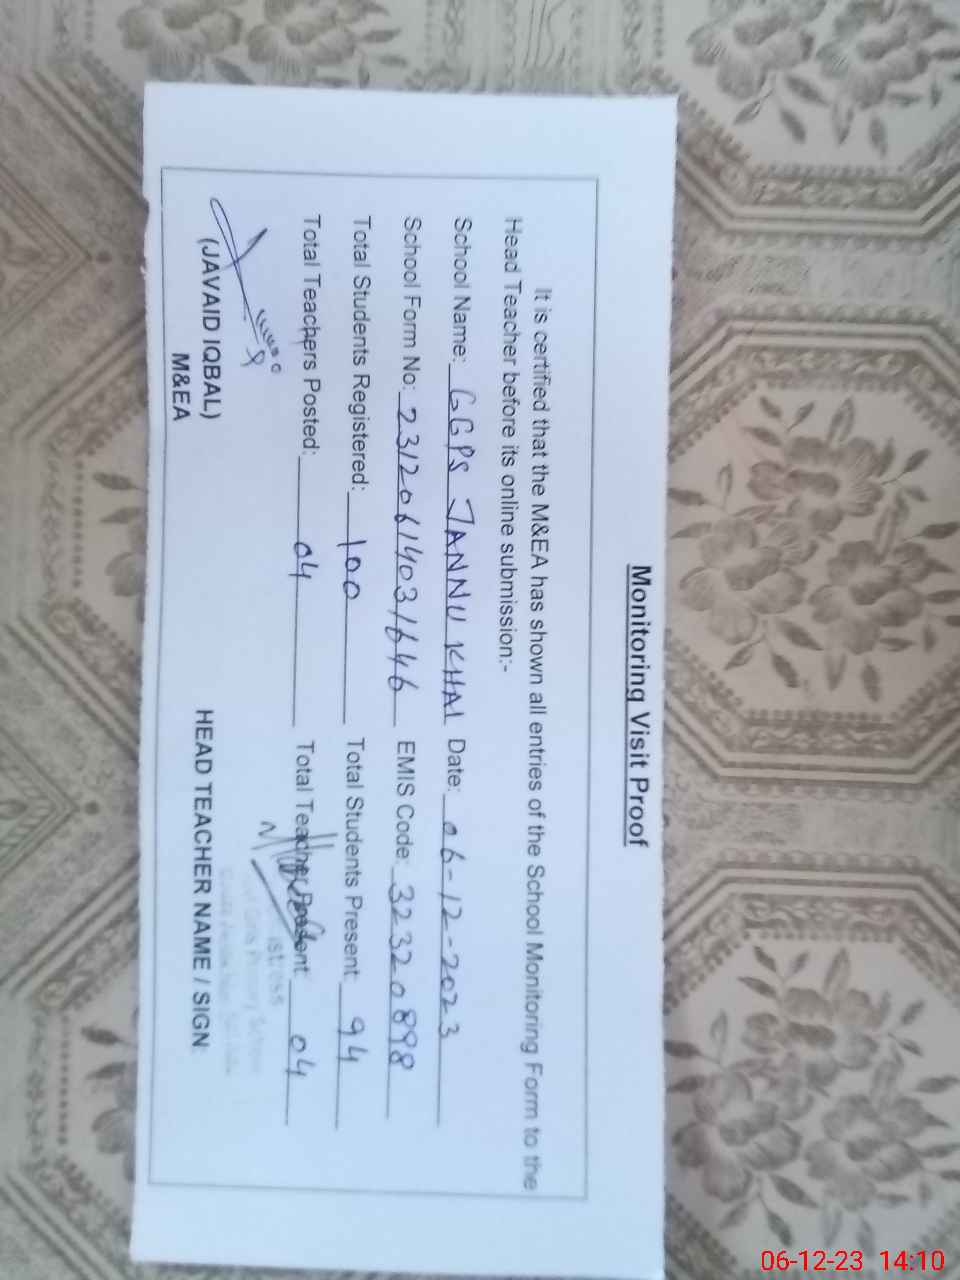 Monitoring Visit Proof
It is certified that the M&EA has shown all entries of the School Monitoring Form to the
Head Teacher before its online submission:-
School Name: GGPS JANNU KHAI Date: 06-12-2023
School Form No: 23120614031646 EMIS Code: 32320898
Total Students Registered: 100 Total Students Present: 94
Total Teachers Posted: 04 Total Teacher Present: 04
(JAVAID IQBAL)
M&EA
HEAD TEACHER NAME / SIGN:
06-12-23 14:10